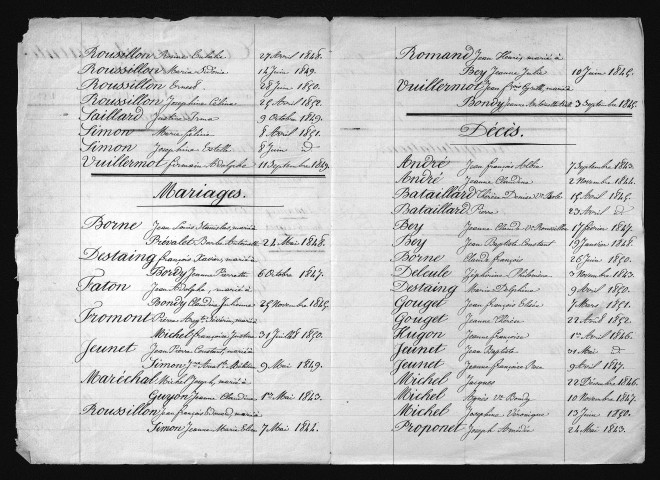 Roussillon 27 Avril 1848.
Roussillon Maria Sidonie 14 Juin 1849.
Roussillon Ernest 28 Juin 1850.
Roussillon Josephine Célina 25 Avril 1852.
Saillard Justine Irma 9 Octobre 1849.
Simon Marie 8 Avril 1851.
Simon Josephine Estelle 8 Juin d°
Vuillermot Germain Adolphe 11 Septembre 1849.
Mariages.
Borne Jean Louis Stanislas, marié à
Prévalet Antoinette 24 Mai 1848.
Destaing François Xavier, marié à
Bordy Jeanne Pierrette 6 Octobre 1847.
Faton Jean Adolphe, marié à
Bondy Claudine Julienne 25 Novembre 1845.
Fromont Pierre marié à
Michel Françoise Justine 31 Juillet 1850.
Jeunet Jean Pierre Constant, marié à
Simon 9 Mai 1849.
Maréchal Michel Joseph, marié à
Guyon Jeanne Claudine 1er Mai 1843.
Roussillon Jean François Edouard, marié à
Simon Jeanne Marie 7 Mai 1844.
Romand Jean Henri, marié à
Bey Jeanne Julie 10 Juin 1845.
Vuillermot Jean marié à
Bondy Jeanne Antoinette 3 Septembre 1845.
Décès.
André Jean François 7 Septembre 1843.
André Jeanne Claudine 2 Novembre 1844.
Bataillard Thérèse Denise Ve 15 Avril 1845.
Bataillard Pierre 23 Avril d°
Bey Jeanne Claude Ve 17 Février 1847.
Bey Jean Baptiste Constant 19 Janvier 1848.
Borne Claude François 26 Juin 1850.
Deleule Zéphirine Philomène 3 Novembre 1843.
Destaing Marie Delphine 9 Avril 1850.
Gouget Jean François Elisée 7 Mars 1851.
Gouget Jeanne Thérèse 22 Avril 1852.
Hugon Jeanne Françoise 1er Avril 1846.
Jeunet Jean Baptiste 31 Mai d°
Jeunet Jeanne Françoise 9 Avril 1847.
Michel Jacques 22 Décembre 1846.
Michel Agnès Ve Bondy 10 Novembre 1847.
Michel Josephine Véronique 13 Juin 1850.
Proponet Joseph Amédée 24 Mai 1843.